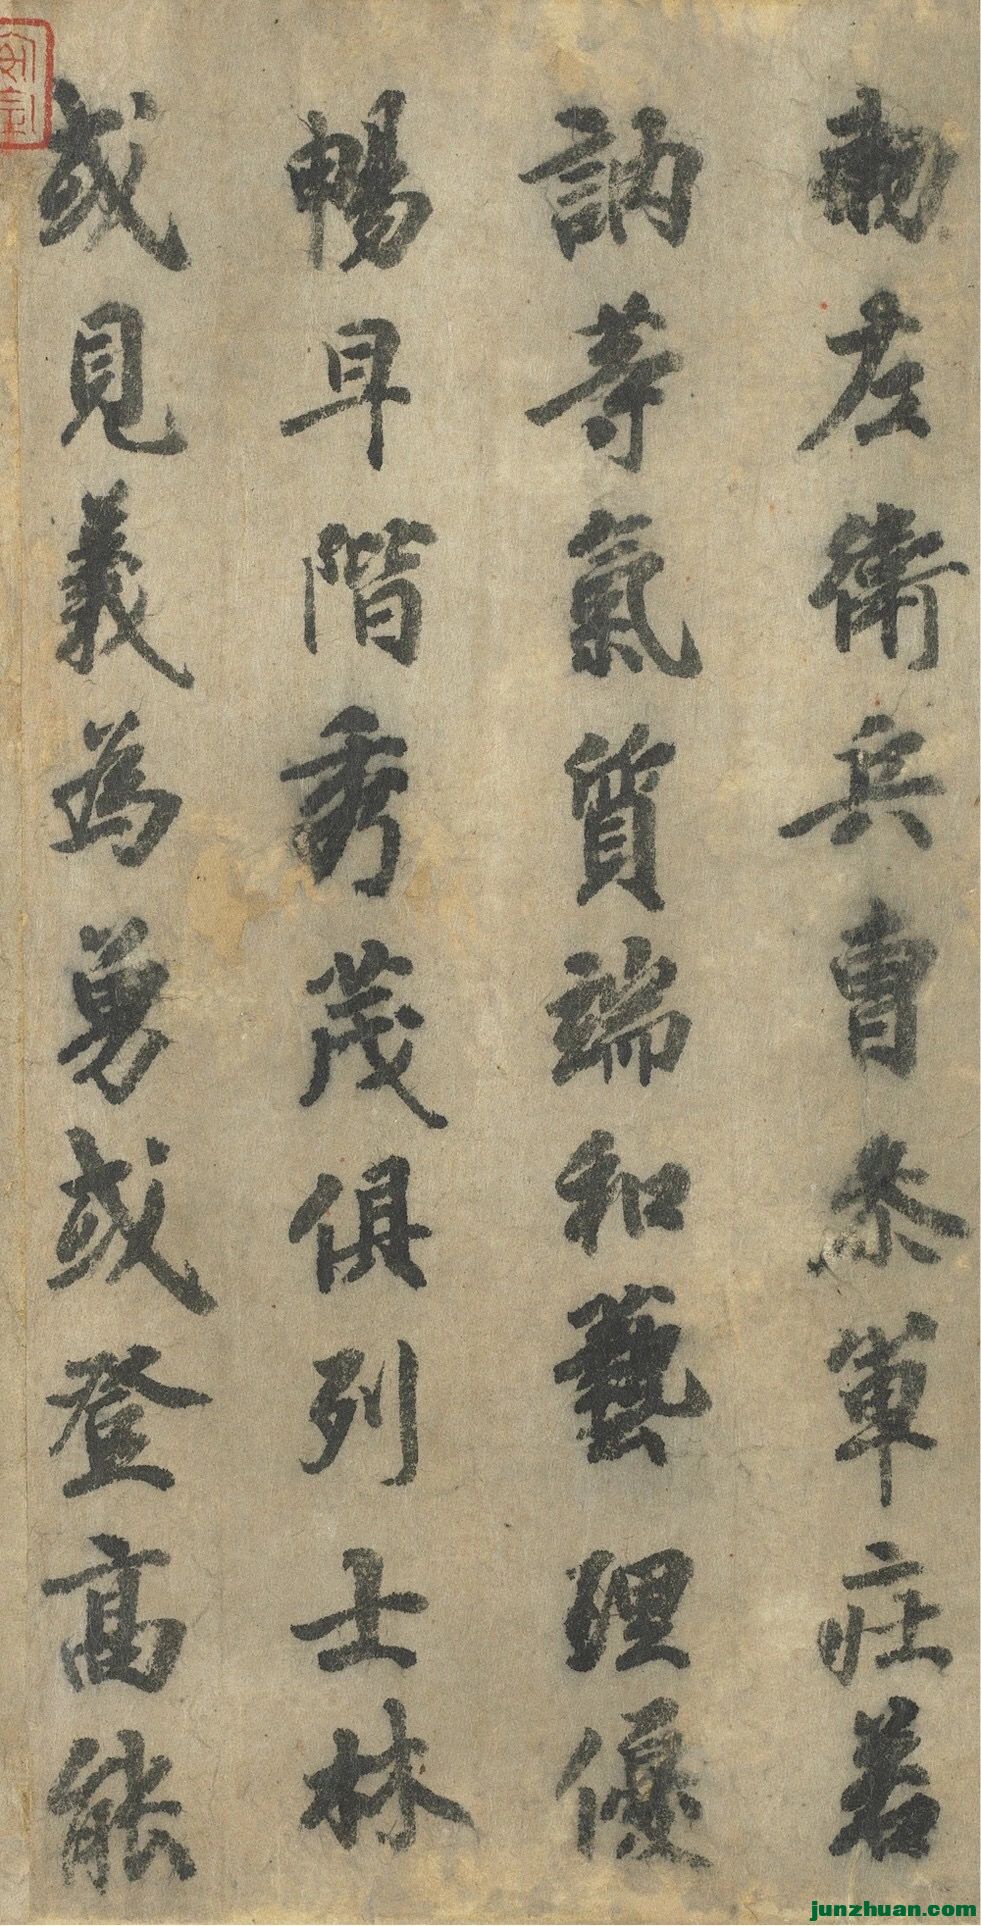 勅左衛兵曹叅軍莊若
訥等氣質端和藝理優
暢早階秀茂俱列士林
或見義為勇或登高能
junzhuan.com